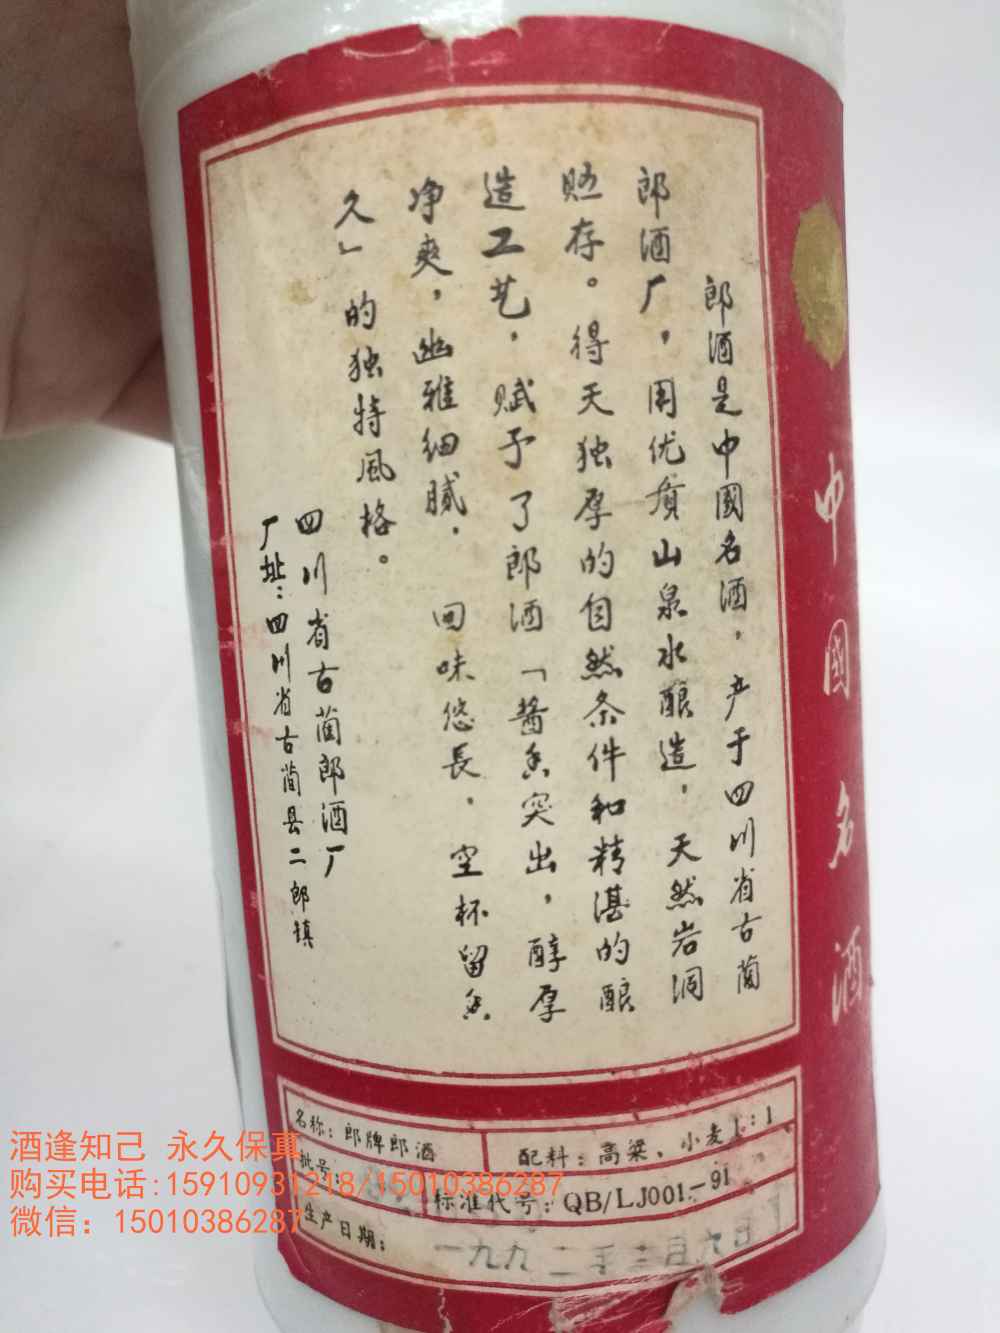 郎酒是中國名酒，产于四川省古蔺
郎酒厂，用优质山泉水酿造，天然岩洞
贮存。得天独厚的自然条件和精湛的酿
造工艺，赋予了郎酒「酱香突出，醇厚
净爽，幽雅细腻，回味悠長，空杯留香
久」的独特風格。
四川省古蔺郎酒厂
厂址：四川省古蔺县二郎镇
中國名酒
名称：郎牌郎酒
配料：高粱、小麦1：1
批号
标准代号：QB/LJ001-91
生产日期：
一九九二年三月六日
酒逢知己 永久保真
购买电话:15910931218/15010386287
微信：15010386287